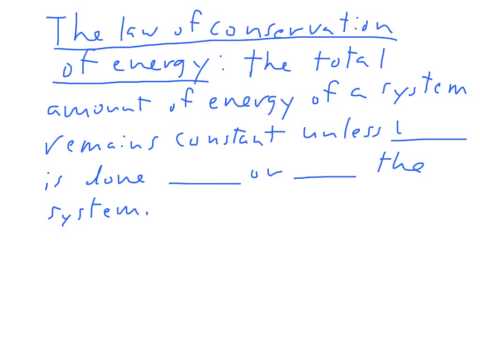 The law of conservation
of energy: the total
amount of energy of a system
remains constant unless ____
is done ____ or ____ the
system.